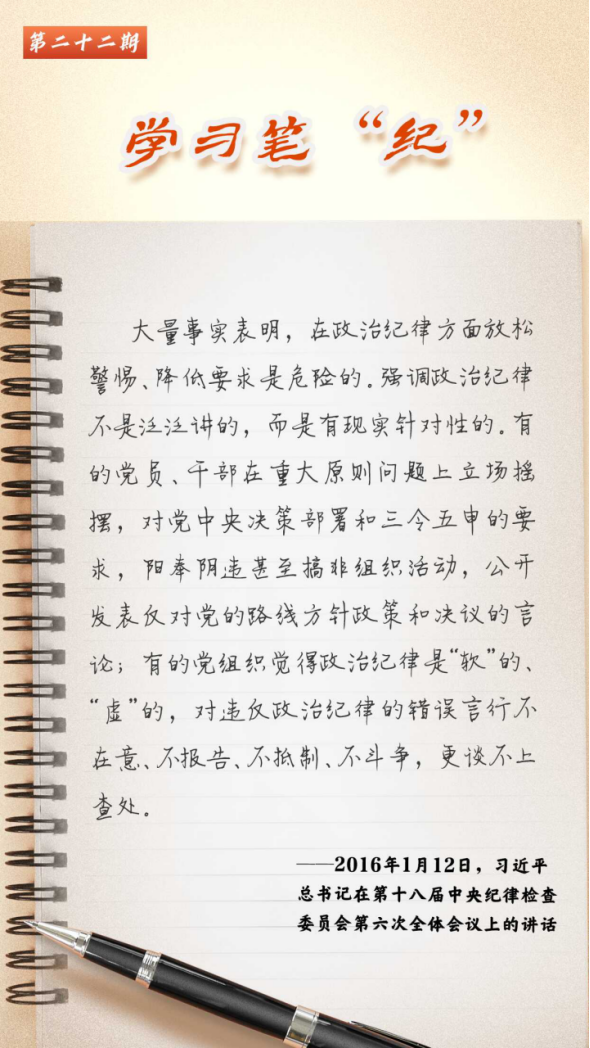 第二十二期
学习笔“纪”
大量事实表明，在政治纪律方面放松
警惕、降低要求是危险的。强调政治纪律
不是泛泛讲的，而是有现实针对性的。有
的党员、干部在重大原则问题上立场摇
摆，对党中央决策部署和三令五申的要
求，阳奉阴违甚至搞非组织活动，公开
发表反对党的路线方针政策和决议的言
论；有的党组织觉得政治纪律是“软”的、
“虚”的，对违反政治纪律的错误言行不
在意、不报告、不抵制、不斗争，更谈不上
查处。
——2016年1月12日，习近平
总书记在第十八届中央纪律检查
委员会第六次全体会议上的讲话